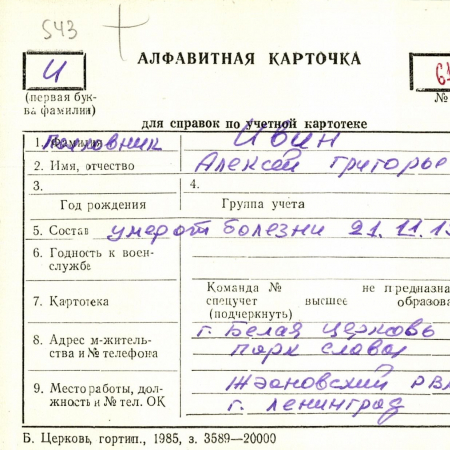 543
АЛФАВИТНАЯ КАРТОЧКА
И
61
(первая бук-
ва фамилии)
№
для справок по учетной картотеке
1. Фамилия Полковник Ивин
2. Имя, отчество Алексей Григорье
3.
4.
Год рождения
Группа учета
5. Состав умер от болезни 21.11.19
6. Годность к воен-
службе
7. Картотека
Команда № не предназна
спецучет высшее образова
(подчеркнуть)
8. Адрес м-житель-
ства и № телефона
г. Белая Церковь
парк Славы
9. Место работы, дол-
жность и № тел. ОК
Ждановский РВК
г. Ленинград
Б. Церковь, гортип., 1985, з. 3589—20000